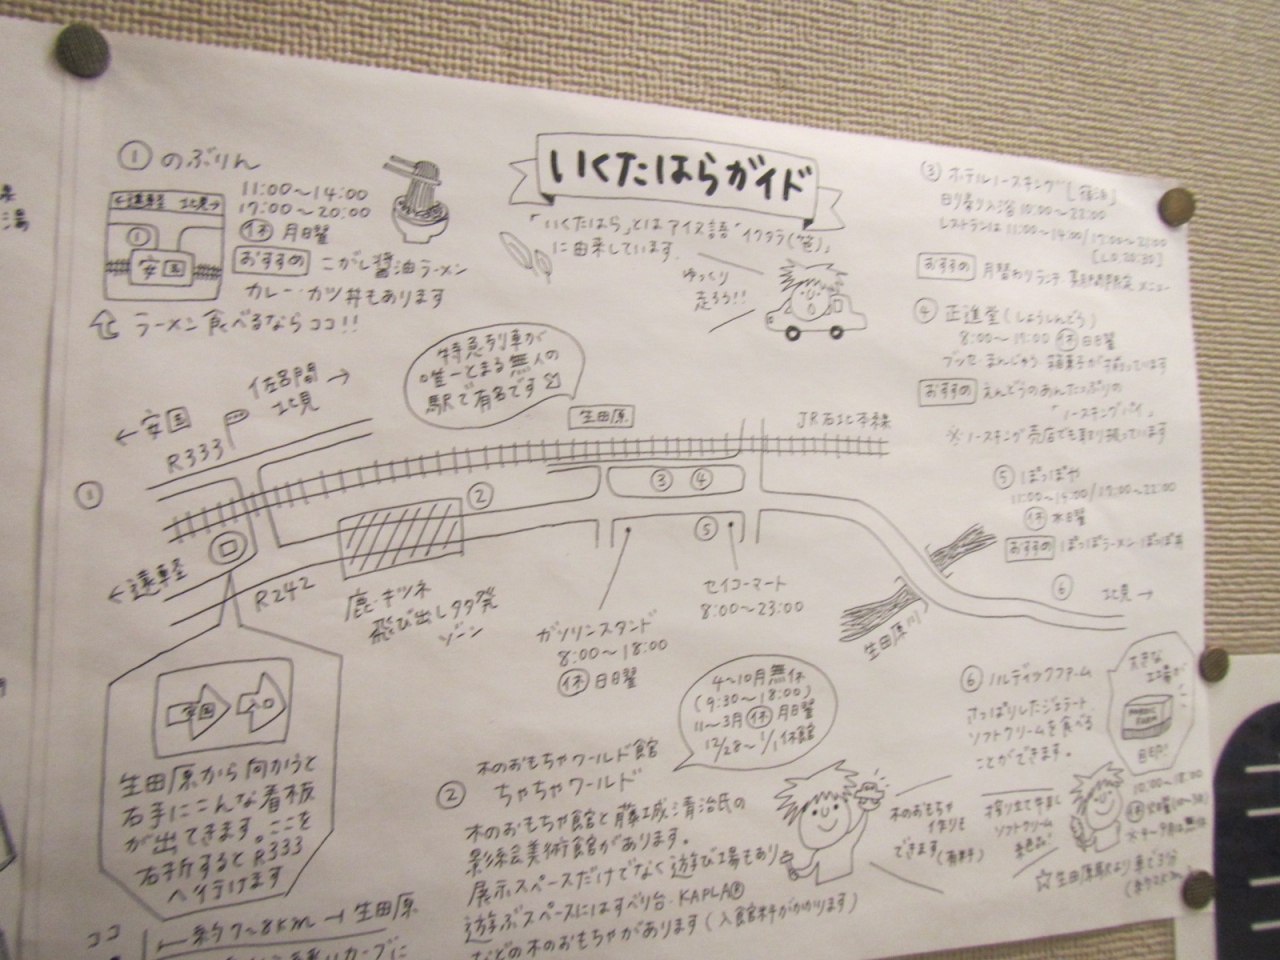 いくたはらガイド
「いくたはら」とはアイヌ語"イクタラ(笹)"
に由来しています。
ゆっくり
走ろう!!
① のぶりん
←遠軽 北見→
①
安国
11:00~14:00
17:00~20:00
休 月曜日
おすすめ こがし醤油ラーメン
カレー・カツ丼もあります
ラーメン食べるならココ!!
特急列車が
唯一とまる無人の
駅で有名です
③ ホテルノースキング [宿泊]
日帰り入浴 10:00~22:00
レストランは 11:00~14:00/17:00~21:00
[L.O 20:30]
おすすめ 月替わりランチ
メニュー
④ 正進堂(しょうしんどう)
8:00~19:00 休 日曜
ブッセ・まんじゅう 箱菓子が揃っています
おすすめ えんどうのあんたっぷりの
「ノースキングパイ」
※ノースキング売店でも取り扱っています
⑤ ぽっぽや
11:00~14:00/17:00~22:00
休 水曜
おすすめ ぽっぽラーメン ぽっぽ丼
←安国
佐呂間
北見
→
R333
生田原
JR石北本線
①
②
③ ④
⑤
⑥
北見→
←遠軽
R242
鹿・キツネ
飛び出し多発
ゾーン
ガソリンスタンド
8:00~18:00
休 日曜
セイコーマート
8:00~23:00
生田原川
安国
入口
生田原から向かうと
右手にこんな看板
が出てきます。ここを
右折するとR333
へ行けます
ココ
←約7~8km→生田原
4~10月無休
(9:30~18:00)
11~3月 休 月曜
12/28~1/1休館
② 木のおもちゃワールド館
ちゃちゃワールド
木のおもちゃ館と藤城清治氏の
影絵美術館があります。
展示スペースだけでなく遊び場もあり
遊ぶスペースにはすべり台・KAPLA®
などの木のおもちゃがあります(入館料がかかります)
木のおもちゃ
作りも
できます(有料)
⑥ ノルディックファーム
さっぱりしたジェラート
ソフトクリームを食べる
ことができます。
大きな
工場が
NORDIC
FARM
目印!
搾り立て牛乳
ソフトクリーム
絶品♪
10:00~18:00
☆生田原駅より車で3分